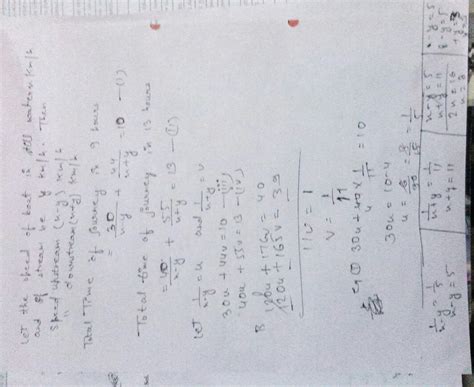 Let the speed of boat in still water x km/h
and of stream be y km/h. Then
Speed upstream (x-y) km/h
" downstream (x+y) km/h
Total Time of journey in 9 hours
= 30/x-y + 44/x+y = 10 - (i)
Total time of journey in 13 hours
= 40/x-y + 55/x+y = 13 - (ii)
Let 1/x-y = u and 1/x+y = v
30u + 44v = 10 - (iii)
40u + 55v = 13 - (iv)
120u + 176v = 40
120u + 165v = 39
11v = 1
v = 1/11
30u + 44 x 1/11 = 10
30u = 10 - 4
u = 6/30 = 1/5
1/x-y = 1/5
x-y = 5
1/x+y = 1/11
x+y = 11
x-y = 5
x+y = 11
2x = 16
x = 8
8-y = 5
y = 3